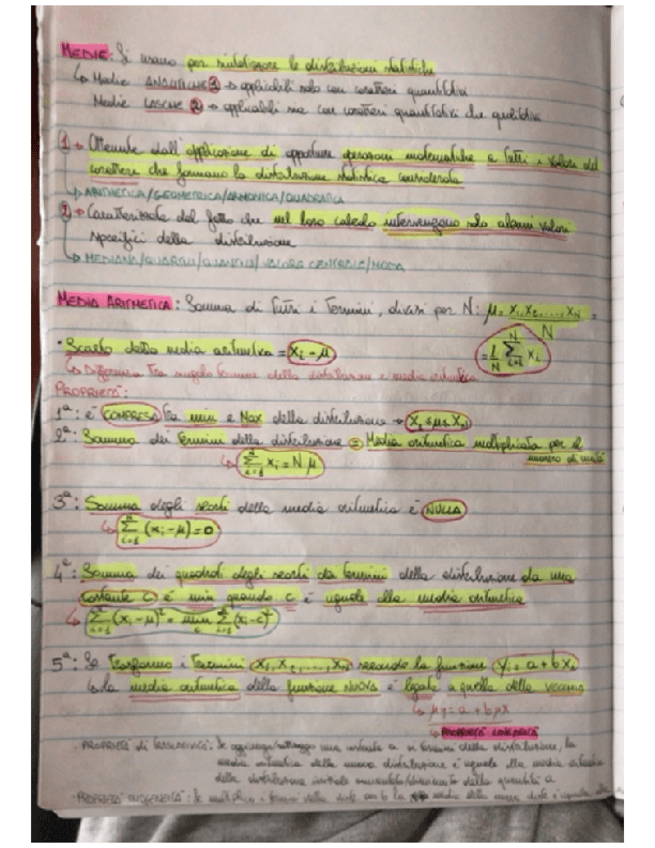 MEDIE: Si usano per sintetizzare le distribuzioni statistiche
↳ Medie ANALITICHE 1 → applicabili solo con caratteri quantitativi
Medie LASCHE 2 → applicabili sia con caratteri quantitativi che qualitativi
1 → Ottenute dall'applicazione di opportune operazioni matematiche a tutti i valori del
carattere che formano la distribuzione statistica considerata
↳ ARITMETICA/GEOMETRICA/ARMONICA/QUADRATICA
2 → Caratterizzate dal fatto che nel loro calcolo intervengono solo alcuni valori
specifici della distribuzione
↳ MEDIANA/QUARTILI/QUANTILI/VALORE CENTRALE/MODA
MEDIA ARITMETICA: Somma di tutti i termini, divisi per N: μ = x₁, x₂, ..., x_N / N =
= 1/N Σ_{i=1}^{N} x_i
· Scarto dalla media aritmetica = x_i - μ
↳ Differenza tra singolo termine della distribuzione e media aritmetica
PROPRIETÀ:
1ª: è COMPRESA tra min e Max della distribuzione → x₁ ≤ μ ≤ x_N
2ª: Somma dei termini della distribuzione = Media aritmetica moltiplicata per il
numero di unità
↳ Σ_{i=1} x_i = N μ
3ª: Somma degli scarti della media aritmetica è NULLA
↳ Σ_{i=1}^{N} (x_i - μ) = 0
4ª: Somma dei quadrati degli scarti da termini della distribuzione da una
costante c è min quando c è uguale alla media aritmetica
↳ Σ_{i=1} (x_i - μ)² = min_c Σ_{i=1} (x_i - c)²
5ª: Se trasformo i termini x₁, x₂, ..., x_N secondo la funzione y_i = a + b x_i
↳ la media aritmetica della funzione NUOVA è legata a quella della VECCHIA
↳ μy = a + bμx
↳ PROPRIETÀ LINEARITÀ
· PROPRIETÀ di TRASLATIVITÀ: Se aggiungo/sottraggo una costante a ai termini della distribuzione, la
media aritmetica della nuova distribuzione è uguale alla media aritmetica
della distribuzione iniziale aumentata/diminuita della quantità a
· PROPRIETÀ OMOGENEITÀ: Se moltiplico i termini della distr. per b la media della nuova distr è uguale